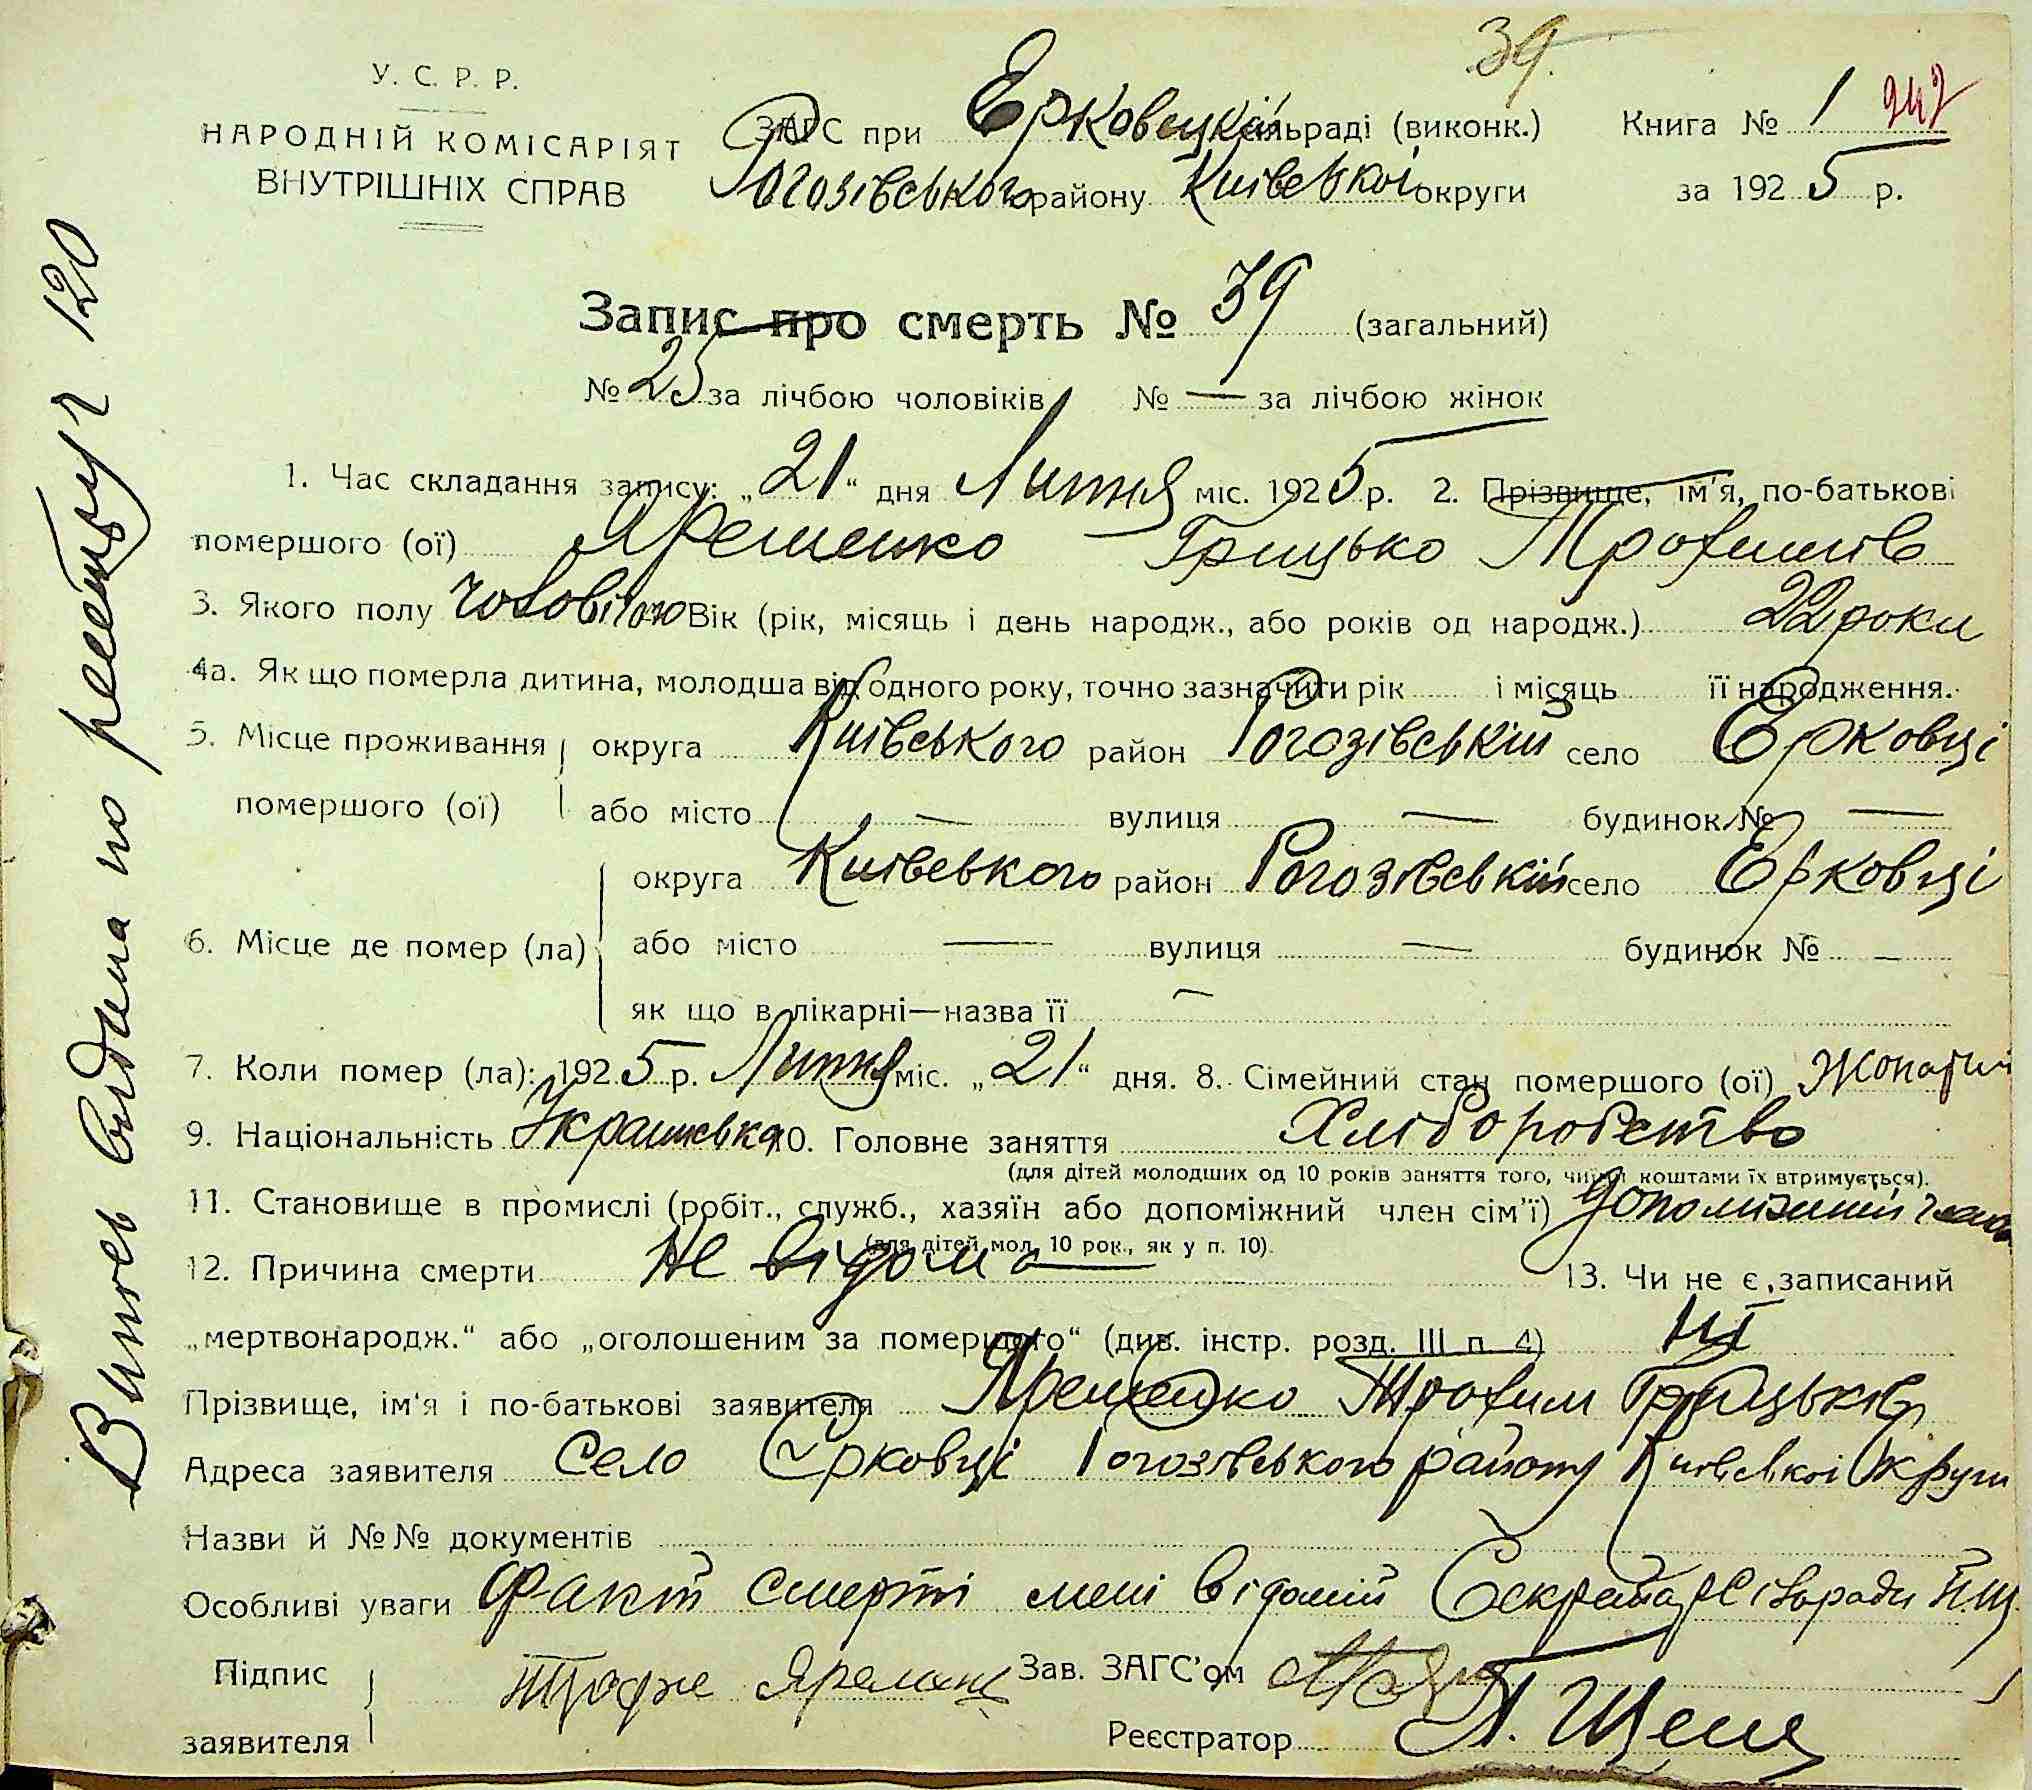 39.
У. С. Р. Р.
НАРОДНІЙ КОМІСАРІЯТ
ВНУТРІШНІХ СПРАВ
ЗАГС при Ерковецкій сільраді (виконк.)
Рогозівського району Київської округи
Книга № 1 242
за 1925 р.
Запис про смерть № 39 (загальний)
№ 25 за лічбою чоловіків № — за лічбою жінок
1. Час складання запису: „21“ дня Лютня міс. 1925 р. 2. Прізвище, ім'я, по-батькові
помершого (ої) Яременко Грицько Трофимів
3. Якого полу чоловічого Вік (рік, місяць і день народж., або років од народж.) 22 роки
4а. Як що померла дитина, молодша від одного року, точно зазначити рік і місяць її народження.
5. Місце проживання помершого (ої) округа Київського район Рогозівський село Ерковці
або місто — вулиця — будинок № —
6. Місце де помер (ла) округа Київського район Рогозівський село Ерковці
або місто — вулиця — будинок № —
як що в лікарні—назва її —
7. Коли помер (ла): 1925 р. Лютня міс. „21“ дня. 8. Сімейний стан помершого (ої) Жонатий
9. Національність Українська 10. Головне заняття Хліборобство
(для дітей молодших од 10 років заняття того, чиїми коштами їх втримується).
11. Становище в промислі (робіт., служб., хазяїн або допоміжний член сім'ї) Допоміжний член
(для дітей мол. 10 рок., як у п. 10).
12. Причина смерти Не відома 13. Чи не є записаний
„мертвонародж.“ або „оголошеним за помершого“ (див. інстр. розд. III п 4) Ні
Прізвище, ім'я і по-батькові заявителя Яременко Трофим Грицьків
Адреса заявителя село Ерковці Рогозівського району Київської Округи
Назви й №№ документів
Особливі уваги Факт смерті мені відомий Секретарь Сільради
Підпис заявителя Трофим Яременко Зав. ЗАГС'ом
Реєстратор
Витяг видана по реєстру 120